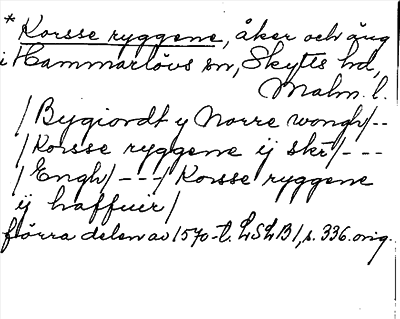 * Korsse ryggene, åker och äng
i Hammarlövs sn, Skytts hd,
Malm. l.
/Bygiordt y Norre wongh/--
/Korsse ryggene ij skr/---
/Engh/---/Korsse ryggene
ij haffuir/
förra delen av 1570-t. LSLB1, s. 336. orig.